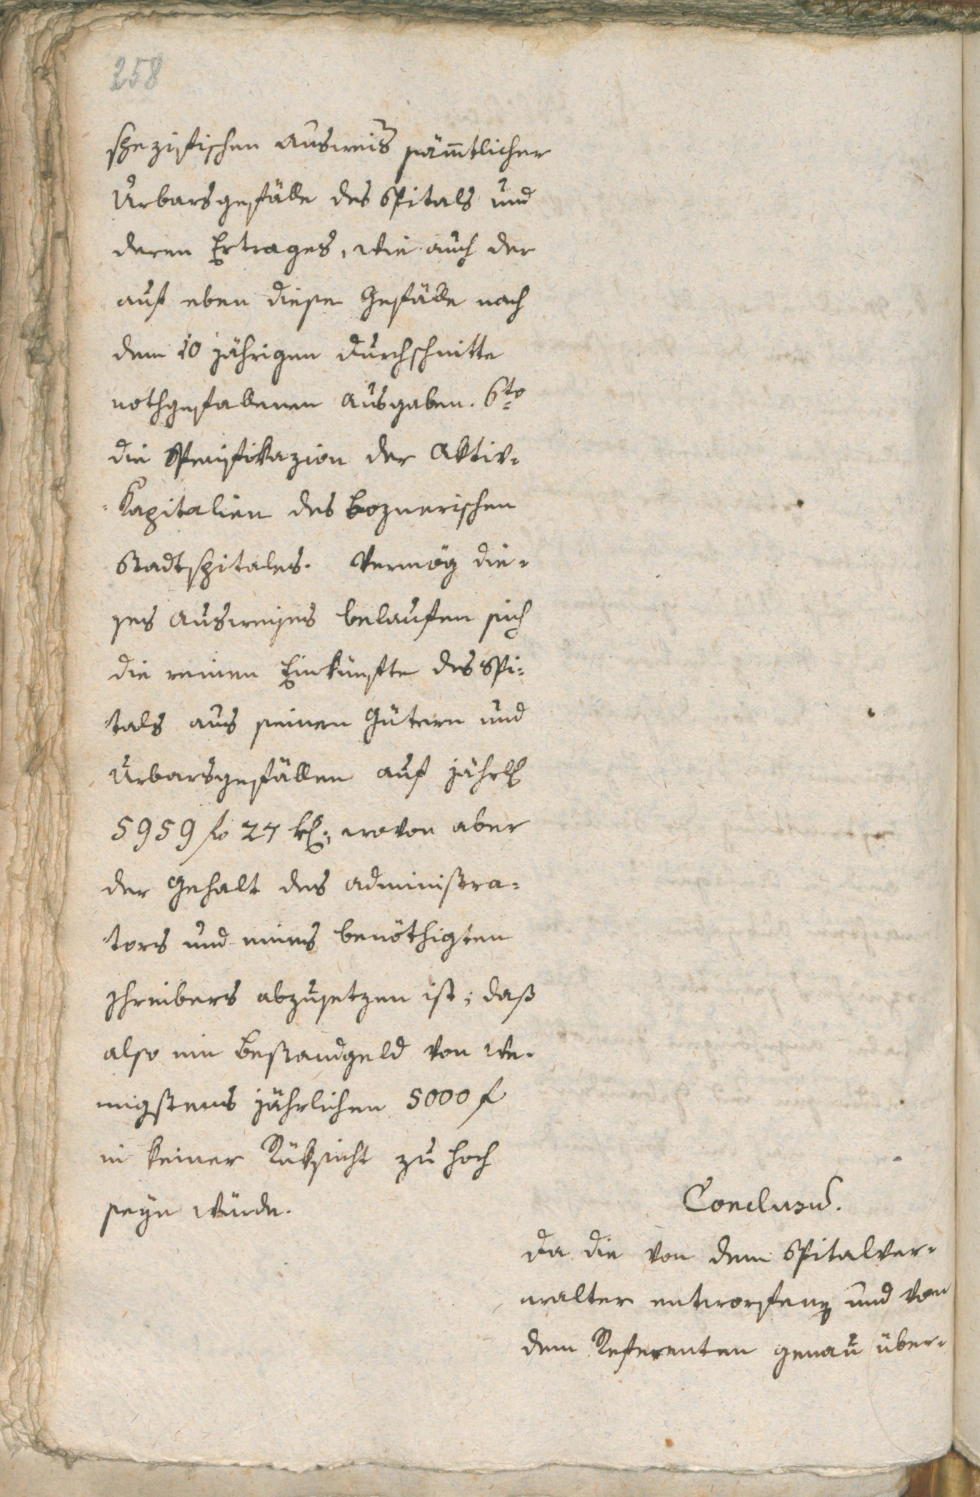 258
spezifischen Ausweis sämtlicher
Urbarsgefälle des Spitals und
deren Ertrages, wie auch der
auf eben diese Gefälle nach
dem 10 jährigen Durchschnitte
nothgefallenen Ausgaben. 6to
die Spezifikazion der Aktiv-
Kapitalien des Boznerischen
Stadtspitales. Vermög die-
ses Ausweises belaufen sich
die reinen Einkünfte des Spi-
tals aus seinen Gütern und
Urbarsgefällen auf jährl
5959 fl 27 kr, wovon aber
der Gehalt des Administra-
tors und eines benöthigten
Schreibers abzusetzen ist; daß
also ein Bestandgeld von we-
nigstens jährlichen 5000 f
in keiner Rüksicht zu hoch
seyn würde.
Conclusum.
Da die von dem Spitalver-
walter entworfene und von
dem Referenten genau über-